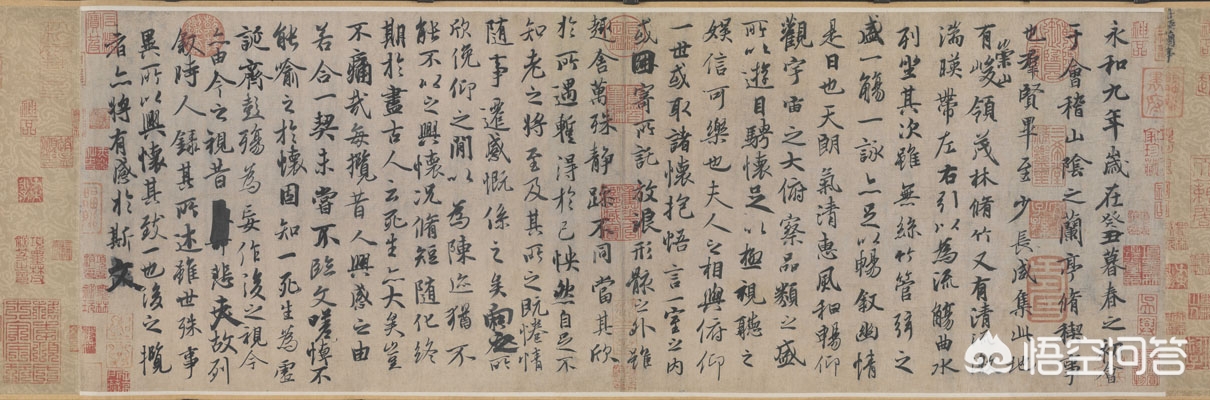 永和九年歲在癸丑暮春之初會
于會稽山陰之蘭亭脩稧事
也羣賢畢至少長咸集此地
有崇山峻領茂林脩竹又有清流
湍暎帶左右引以為流觴曲水
列坐其次雖無絲竹管弦之
盛一觴一詠亦足以暢叙幽情
是日也天朗氣清惠風和暢仰
觀宇宙之大俯察品類之盛
所以遊目騁懷足以極視聽之
娛信可樂也夫人之相與俯仰
一世或取諸懷抱悟言一室之內
或因寄所託放浪形骸之外雖
趣舍萬殊靜躁不同當其欣
於所遇暫得於己怏然自足不
知老之將至及其所之既惓情
隨事遷感慨係之矣向之所
欣俛仰之閒以為陳迹猶不
能不以之興懷況脩短隨化終
期於盡古人云死生亦大矣豈
不痛哉每攬昔人興感之由
若合一契未嘗不臨文嗟悼不
能喻之於懷固知一死生為虛
誕齊彭殤為妄作後之視今
亦由今之視昔悲夫故列
敘時人錄其所述雖世殊事
異所以興懷其致一也後之攬
者亦將有感於斯文
悟空问答